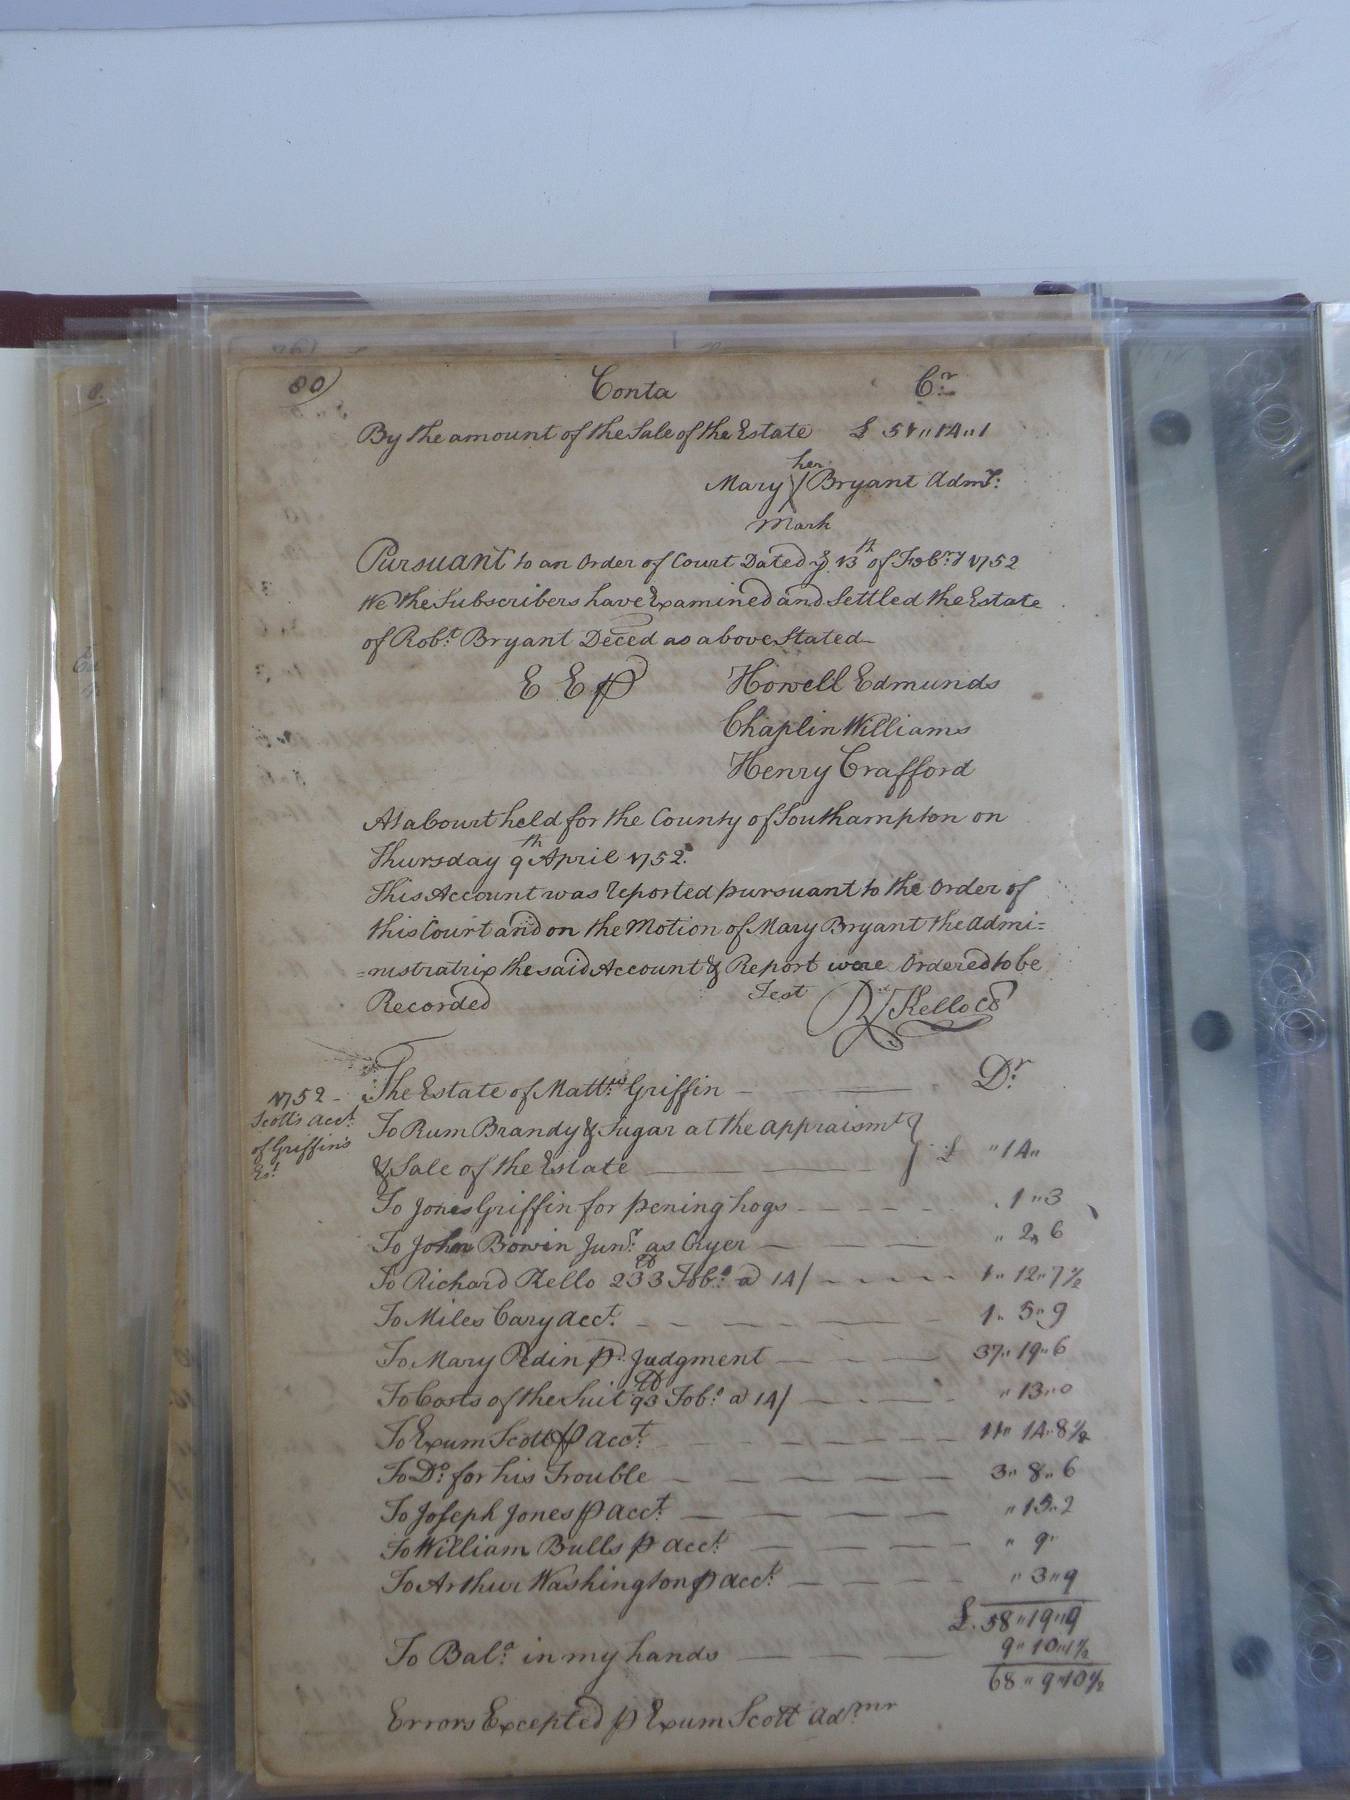 80)
Conta Cr.
By the amount of the Sale of the Estate £ 51 " 14 " 1
her
Mary X Bryant Admr:
Mark
Pursuant to an Order of Court Dated ye 13th of Febry 1752
We the Subscribers have Examined and Settled the Estate
of Robt. Bryant Deced as above Stated
E E p Howell Edmunds
Chaplin Williams
Henry Crafford
At a Court held for the County of Southampton on
Thursday 9th April 1752.
This Account was reported pursuant to the Order of
this Court and on the Motion of Mary Bryant the Admi=
=nistratrix the said Account & Report were Ordered to be
Recorded Test Rd Kello CC
The Estate of Matthw. Griffin — Dr
1752 -
Scott's Acct.
of Griffin's
Est
To Rum Brandy & Sugar at the appraismt
& Sale of the Estate — £ " 14 "
To Jones Griffin for pening hogs — . 1 " 3
To John Bowin Junr. as Cryer — " 2 " 6
To Richard Kello 233 lb Tobo. a 14/ — 1 " 12 " 7 1/2
To Miles Cary Acct. — 1 " 5 " 9
To Mary Pedin pr. Judgment — 37 " 19 " 6
To Costs of the Suit 93 lb Tobo. a 14/ — " 13 " 0
To Exum Scott p Acct. — 11 " 14 " 8 1/2
To Do. for his Trouble — 3 " 8 " 6
To Joseph Jones p Acct. — " 15 " 2
To William Bulls p acct. — " 9 "
To Arthur Washington p acct. — " 3 " 9
£. 58 " 19 " 9
To Bala. in my hands — 9 " 10 " 1 1/2
68 " 9 " 10 1/2
Errors Excepted p Exum Scott Admr